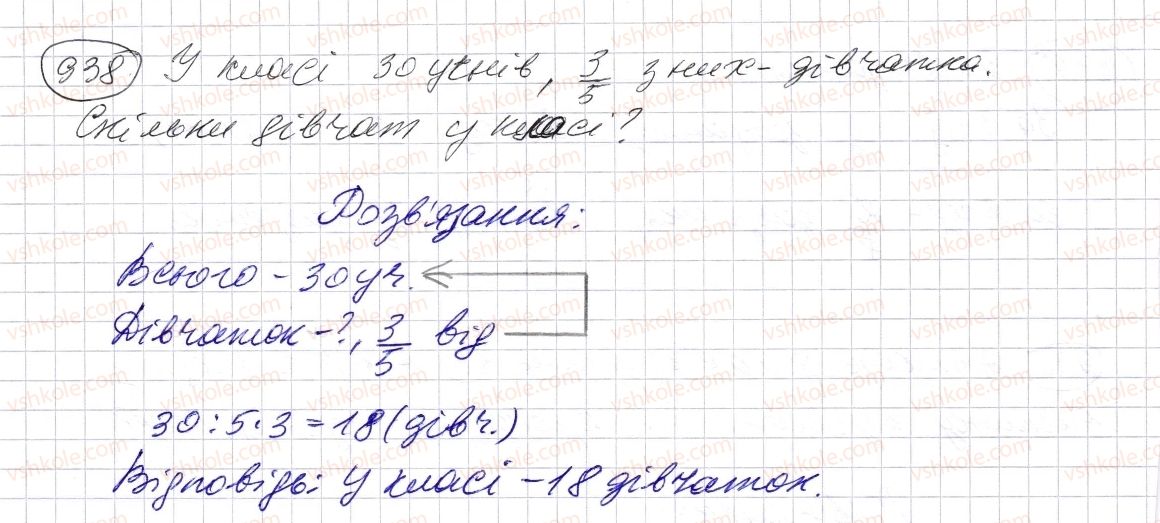 938 У класі 30 учнів, 3/5 з них - дівчатка.
Скільки дівчат у класі?
Розв'язання:
Всього - 30 уч.
Дівчаток - ?, 3/5 від
30 : 5 · 3 = 18 (дівч.)
Відповідь: У класі - 18 дівчаток.